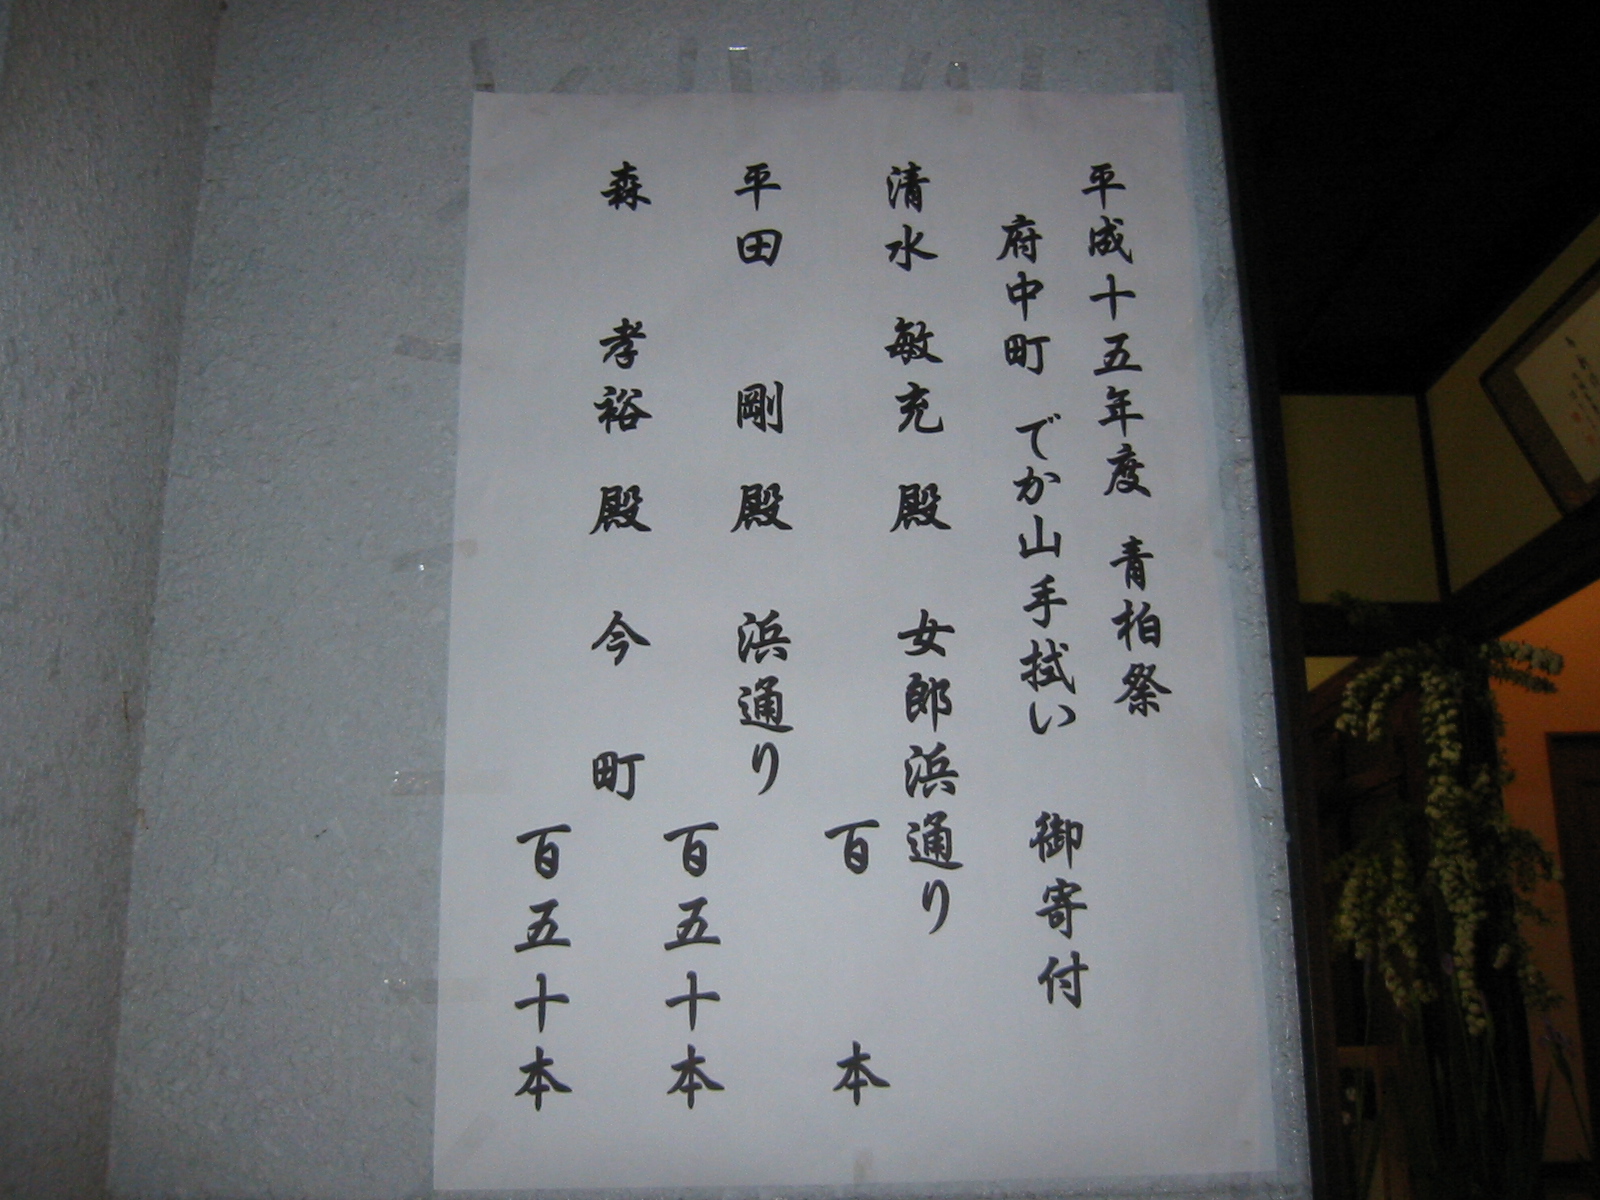 平成十五年度 青柏祭
府中町 でか山手拭い 御寄付
清水 敏充 殿 女郎浜通り
百 本
平田 剛 殿 浜通り
百五十本
森 孝裕 殿 今 町
百五十本